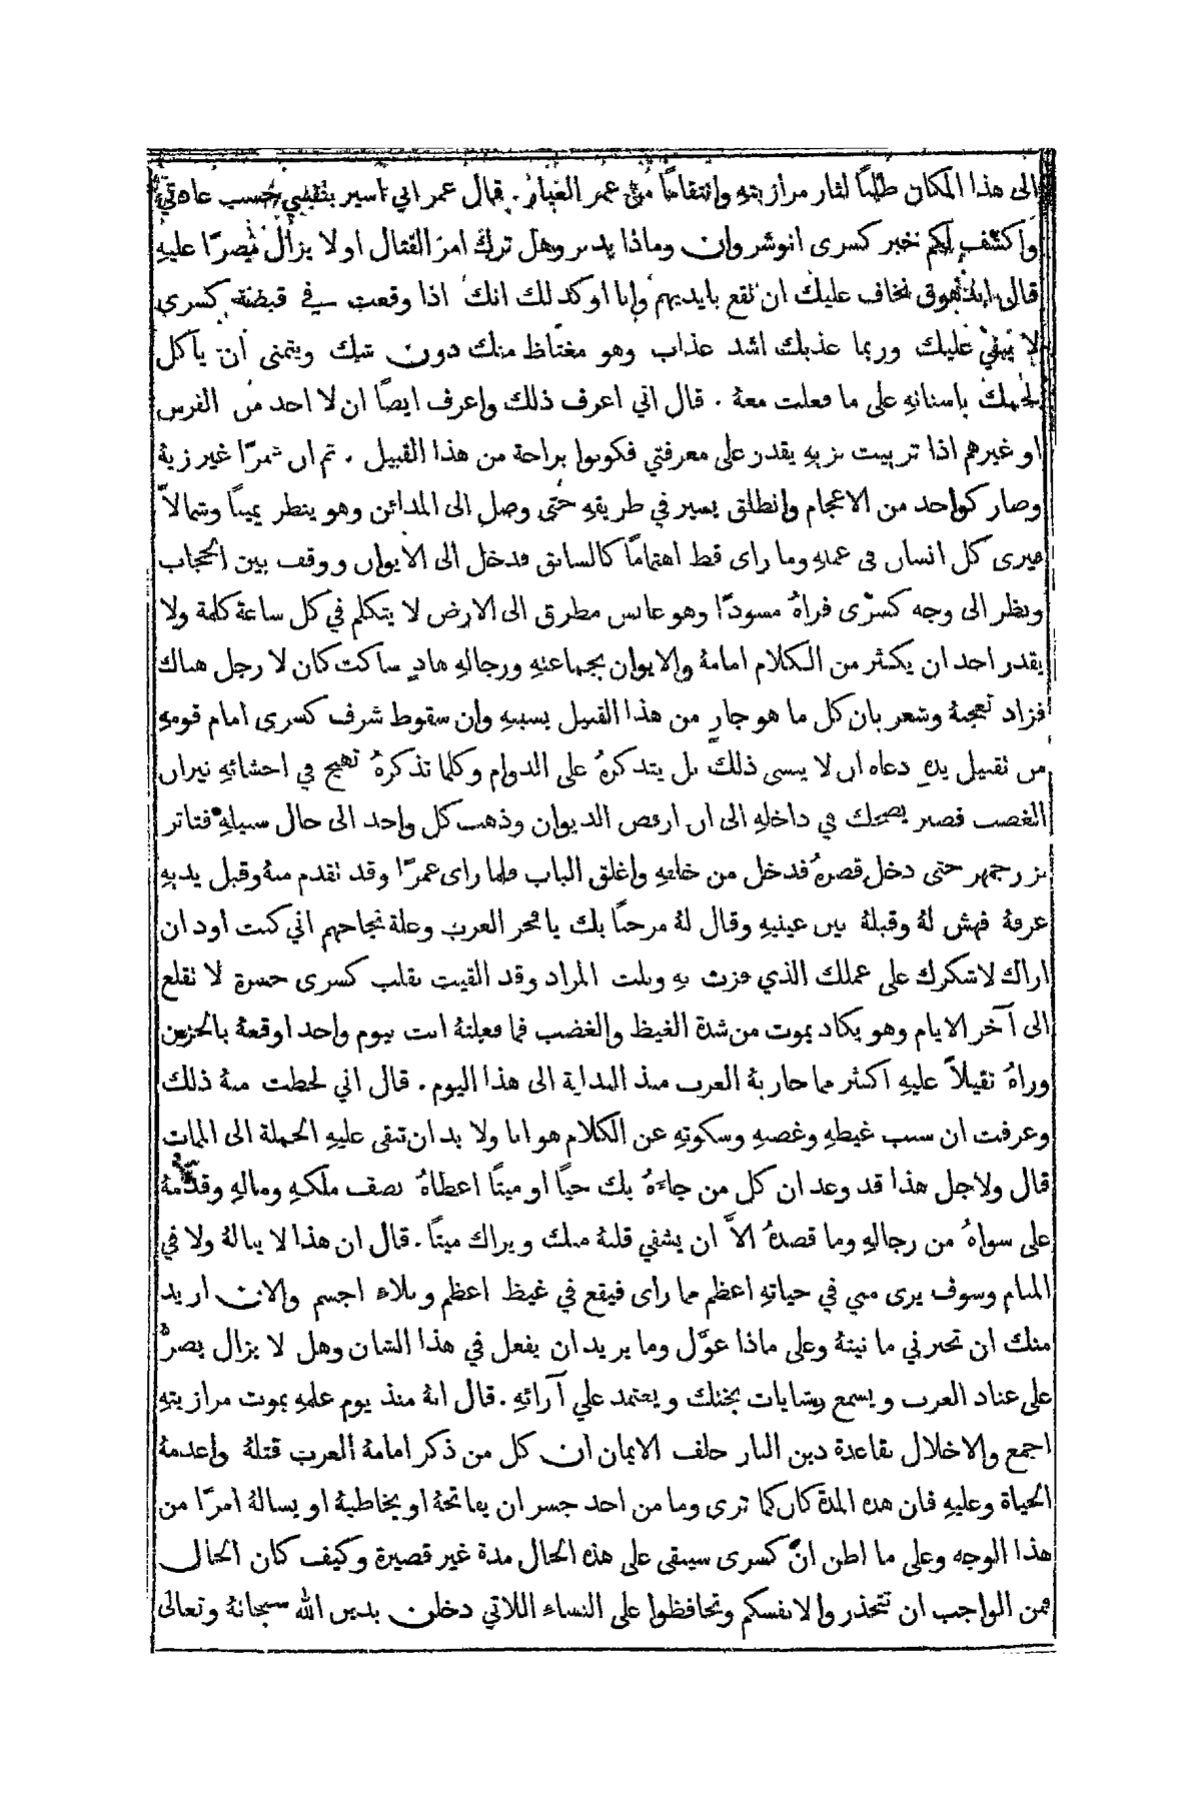 الى هذا المكان طلبًا لثار مرازبتهِ وانتقامًا من عمر العيار. فقال عمر اني اسير بنفسي حسب عادتي
واكشف لكم خبر كسرى انوشروان وماذا يدبر وهل ترك امر القتال او لا يزال مصرًا عليهِ
قال اندهوق نخاف عليك ان تقع بايديهم وانا اوكد لك انك اذا وقعت في قبضة كسرى
لا يبقي عليك وربما عذبك اشد عذاب وهو مغتاظ منك دون شك ويتمنى ان ياكل
لحمك باسنانهِ على ما فعلت معهُ. قال اني اعرف ذلك واعرف ايضًا ان لا احد من الفرس
او غيرهم اذا تربيت بزيهِ يقدر على معرفتي فكونوا براحة من هذا القبيل. ثم ان عمرًا غير زيهُ
وصار كواحد من الاعجام وانطلق يسير في طريقهِ حتى وصل الى المدائن وهو ينظر يمينًا وشمالاً
فيرى كل انسان في عملهِ وما راى قط اهتمامًا كالسابق فدخل الى الايوان ووقف بين الحجاب
ونظر الى وجه كسرى فراهُ مسودًا وهو عابس مطرق الى الارض لا يتكلم في كل ساعة كلمة ولا
يقدر احد ان يكثر من الكلام امامهُ والايوان بجماعتهِ ورجالهِ هادٍ ساكت كان لا رجل هناك
فزاد تعجبهُ وشعر بان كل ما هو جارٍ من هذا القبيل بسببهِ وان سقوط شرف كسرى امام قومهِ
من تقبيل يدهِ دعاه ان لا ينسى ذلك بل يتذكرهُ على الدوام وكلما تذكرهُ تهيج في احشائهِ نيران
الغضب فصبر يضحك في داخلهِ الى ان ارفض الديوان وذهب كل واحد الى حال سبيلهِ فتاثر
بزرجمهر حتى دخل قصرهُ فدخل من خلفهِ واغلق الباب فلما راى عمرًا وقد تقدم منهُ وقبل يديهِ
عرفهُ فهش لهُ وقبلهُ بين عينيهِ وقال لهُ مرحبًا بك يا فخر العرب وعلة نجاحهم اني كنت اود ان
اراك لاشكرك على عملك الذي فزت بهِ ونلت المراد وقد القيت بقلب كسرى حسرة لا تقلع
الى آخر الايام وهو يكاد يموت من شدة الغيظ والغضب فما فعلتهُ انت بيوم واحد اوقعهُ بالحزن
وراهُ ثقيلاً عليهِ اكثر مما حاربهُ العرب منذ البداية الى هذا اليوم. قال اني لحظت منهُ ذلك
وعرفت ان سبب غيظهِ وغضبهِ وسكوتهِ عن الكلام هو انا ولا بد ان تبقى عليهِ الحملة الى الممات
قال ولاجل هذا قد وعد ان كل من جاءهُ بك حيًا او ميتًا اعطاهُ نصف ملكهِ ومالهِ وقدمهُ
على سواهُ من رجالهِ وما قصدهُ الاَّ ان يشفي قلبهُ منك ويراك ميتًا. قال ان هذا لا ينالهُ ولا في
المنام وسوف يرى مني في حياتهِ اعظم مما راى فيقع في غيظ اعظم وبلاء اجسم والان اريد
منك ان تخبرني ما نيتهُ وعلى ماذا عوَّل وما يريد ان يفعل في هذا الشان وهل لا يزال يصرُّ
على عناد العرب ويسمع وشايات بختك ويعتمد علي آرائهِ. قال انهُ منذ يوم علمهِ بموت مرازبتهِ
اجمع والاخلال بقاعدة دين النار حلف الايمان ان كل من ذكر امامهُ العرب قتلهُ واعدمهُ
الحياة وعليهِ فان هذه المدة كان كما ترى وما من احد جسر ان يفاتحهُ او يخاطبهُ او يسالهُ امرًا من
هذا الوجه وعلى ما اظن انَّ كسرى سيبقى على هذه الحال مدة غير قصيرة وكيف كان الحال
فمن الواجب ان تتحذروا لانفسكم وتحافظوا على النساء اللاتي دخلن بدين الله سبحانهُ وتعالى